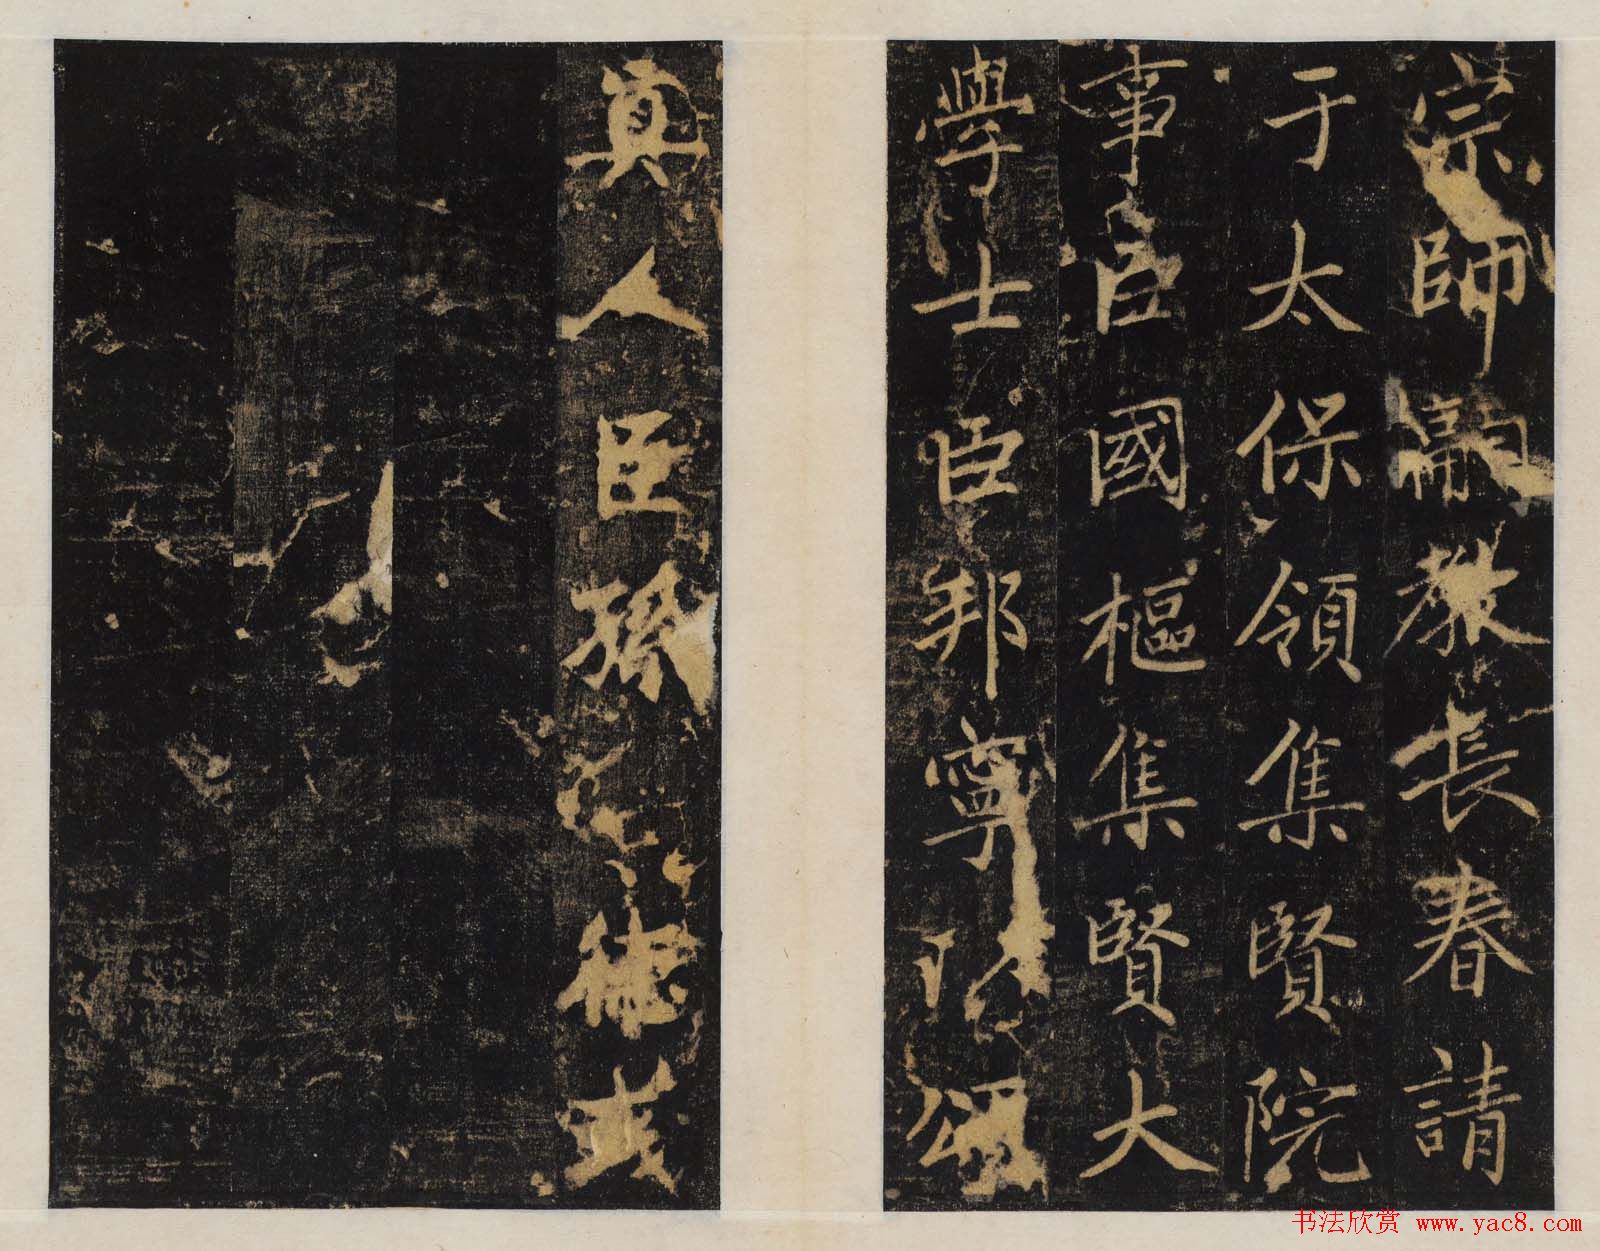 宗師嗣教長春請
于太保領集賢院
事臣國樞集賢大
學士臣邦寧 頌
真人臣孫 德彧
书法欣赏 www.yac8.com